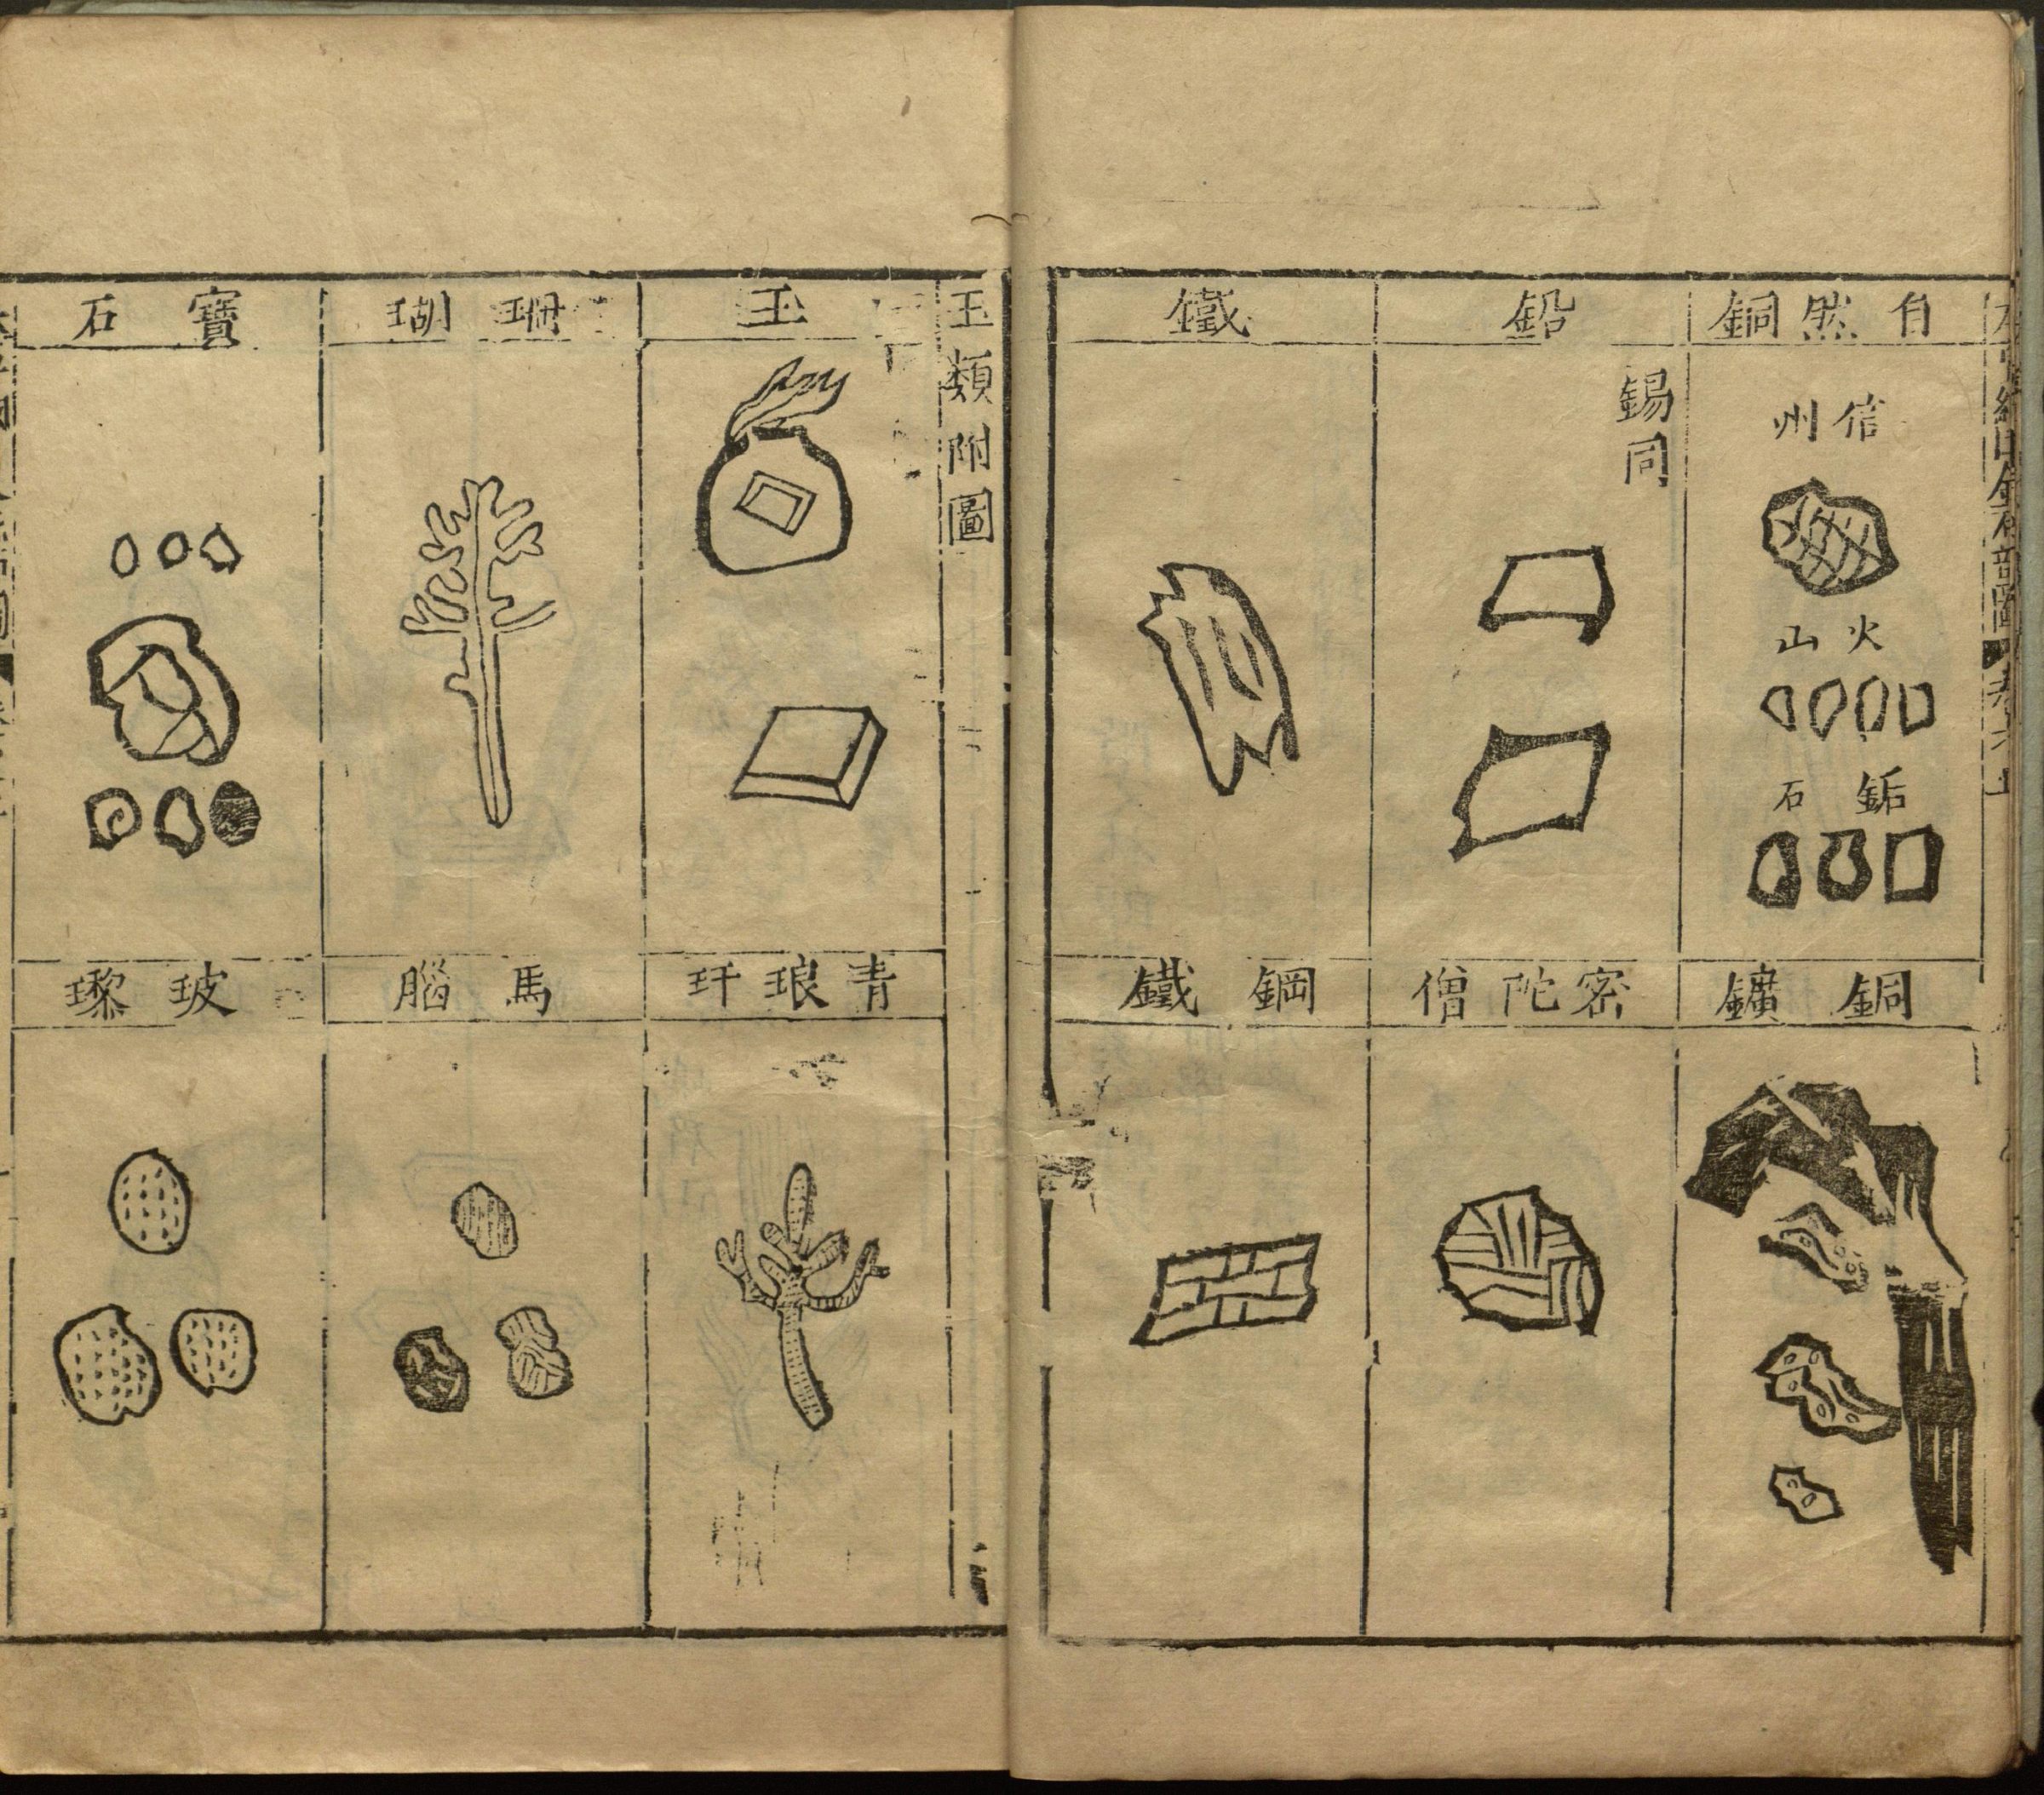 自然銅
信州
火山
銗石
鉛
錫同
鐵
銅鑛
密陀僧
鋼鐵
玉類附圖
玉
珊瑚
寶石
青琅玕
馬腦
玻瓈